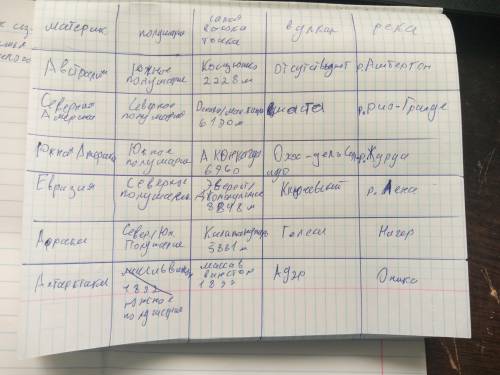 материк полушарие самая высокая точка вулкан река
Австралия Южное полушарие Косцюшко 2228 м отсутствуют р.
Северная Америка Северное полушарие 6190 м Шаста р. Рио-Гранде
Южная Америка Южное полушарие Аконкагуа 6960 Охос-дель-Сал р. Журуа
Евразия Северное полушарие Эверест/Джомолунгма 8848 м Ключевский р. Лена
Африка Север/Юж Полушарие Килиманджаро 5881 м Нигер
Антарктида 1892 южное полушария массив винсон 1892 Оникс